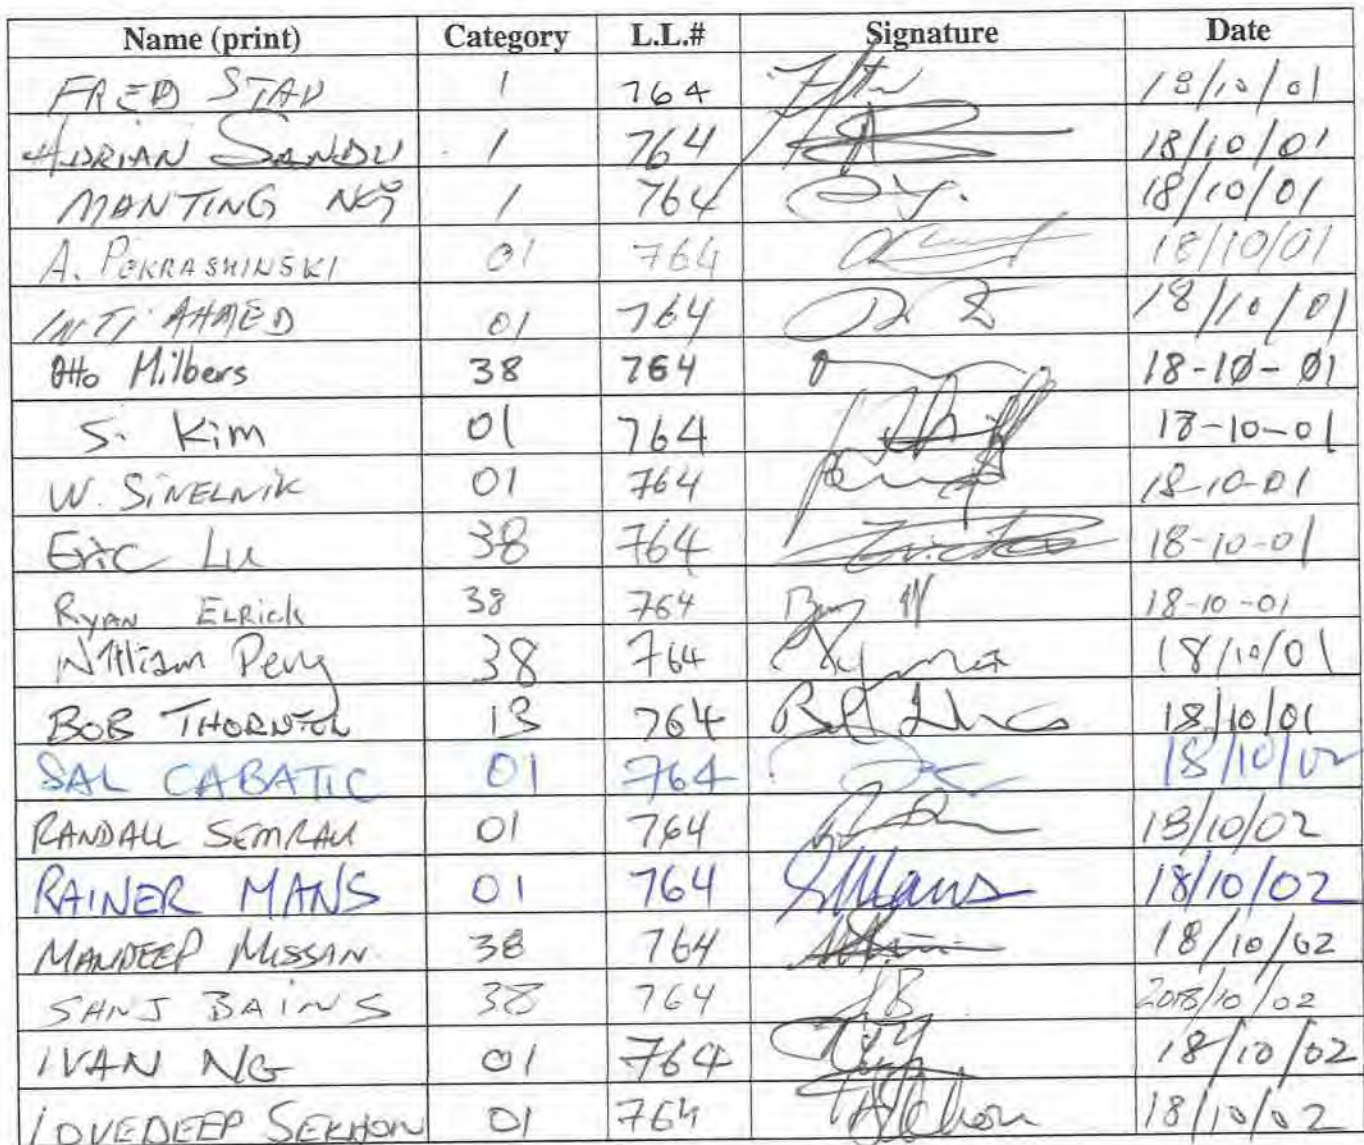 Name (print) Category L.L.# Signature Date
FRED STAD 1 764 18/10/01
ADRIAN SANDU 1 764 18/10/01
MANTING NG 1 764 18/10/01
A. POKRASHINSKI 01 764 18/10/01
INTI AHMED 01 764 18/10/01
Otto Milbers 38 764 18-10-01
S. Kim 01 764 18-10-01
W. SINELNIK 01 764 18-10-01
Eric Lu 38 764 18-10-01
RYAN ELRICK 38 764 18-10-01
William Peng 38 764 18/10/01
BOB 13 764 18/10/01
SAL CABATIC 01 764 18/10/02
RANDALL SEMRAU 01 764 18/10/02
RAINER MANS 01 764 RMans 18/10/02
MANDEEP MISSAN 38 764 18/10/02
SANJ BAINS 38 764 SB 2018/10/02
IVAN NG 01 764 18/10/02
LOVEDEEP SEKHON 01 764 18/10/02